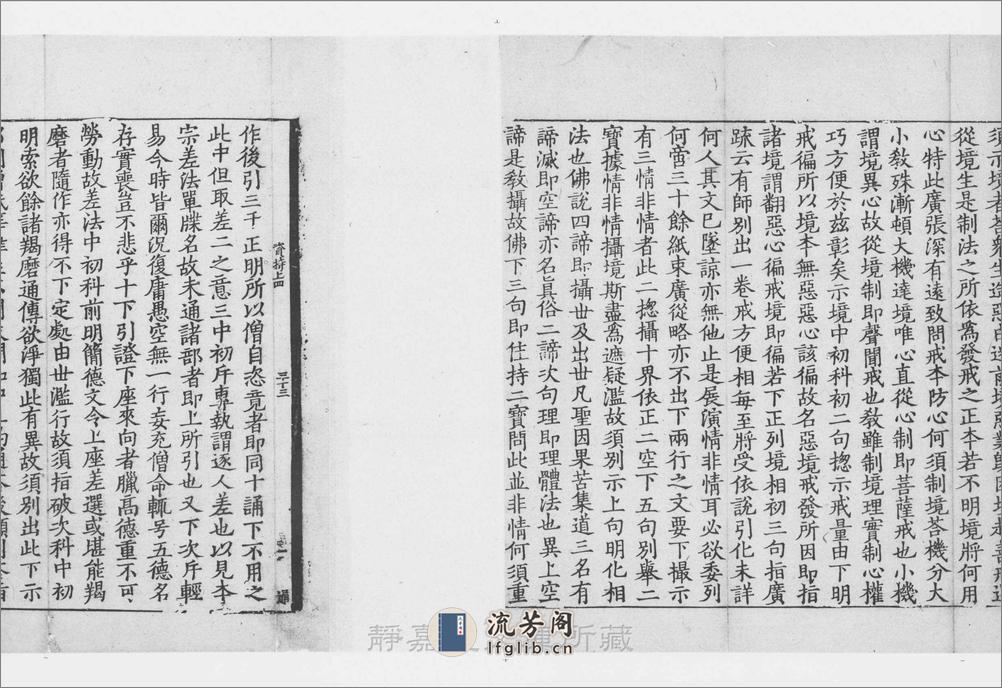 從境生是制法之所依爲發戒之正本若不明境將何用
心特此廣張深有遠致問戒本防心何須制境荅機分大
小教殊漸頓大機達境唯心直從心制即菩薩戒也小機
謂境異心故從境制即聲聞戒也教雖制境理實制心權
巧方便於兹彰矣示境中初科初二句揔示戒量由下明
戒徧所以境本無惡惡心該徧故名惡境戒發所因即指
諸境謂翻惡心徧戒境即徧若下正列境相初三句指廣
疏云有師別出一卷戒方便相每至將受依說引化未詳
何人其文已墜諒亦無他止是展演情非情耳必欲委列
何啻三十餘紙束廣從略亦不出下兩行之文要下撮示
有三情非情者此二揔攝十界依正二空下五句別舉二
寶據情非情攝境斯盡爲遮疑濫故須別示上句明化相
法也佛說四諦即攝世及出世凡聖因果苦集道三名有
諦滅即空諦亦名眞俗二諦次句理即理體法也異上空
諦是教攝故佛下三句即住持二寶問此並非情何須重
資持上四
三十三
作後引三千正明所以僧自恣竟者即同十誦下不用之
此中但取差二之意三中初斥專執謂逐人差也以見本
宗差法單牒名故未通諸部者即上所引也又下次斥輕
易今時皆爾況復庸愚空無一行妄充僧命輒号五德名
存實喪豈不悲乎十下引證下座來向者臘髙德重不可
勞動故差法中初科前明簡德文令上座差選或堪能羯
磨者隨作亦得不下定處由世濫行故須指破次科中初
明索欲餘諸羯磨通傳欲淨獨此有異故須別出此下示
靜嘉 所藏
流芳阁
lfglib.cn